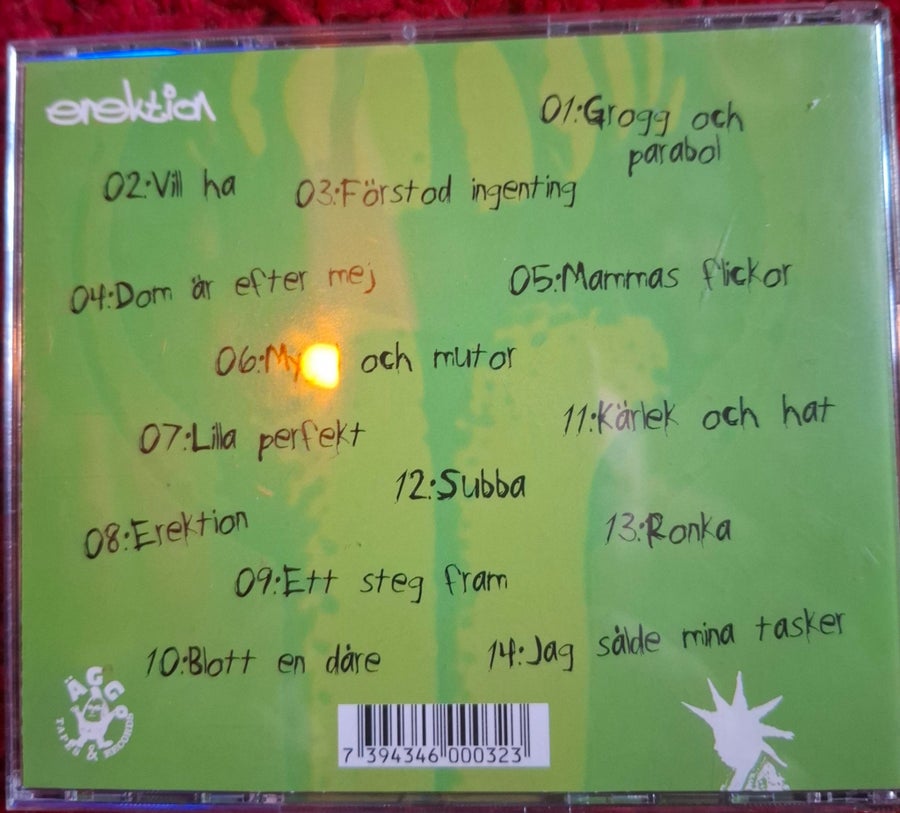 erektion
01:Grogg och
parabol
02:Vill ha
03:Förstod ingenting
04:Dom är efter mej
05:Mammas flickor
06: och mutor
07:Lilla perfekt
11:Kärlek och hat
12:Subba
08:Erektion
13:Ronka
09:Ett steg fram
10:Blott en dåre
14:Jag sålde mina tasker
ÄGG
TAPES & RECORDS
7 394346 000323